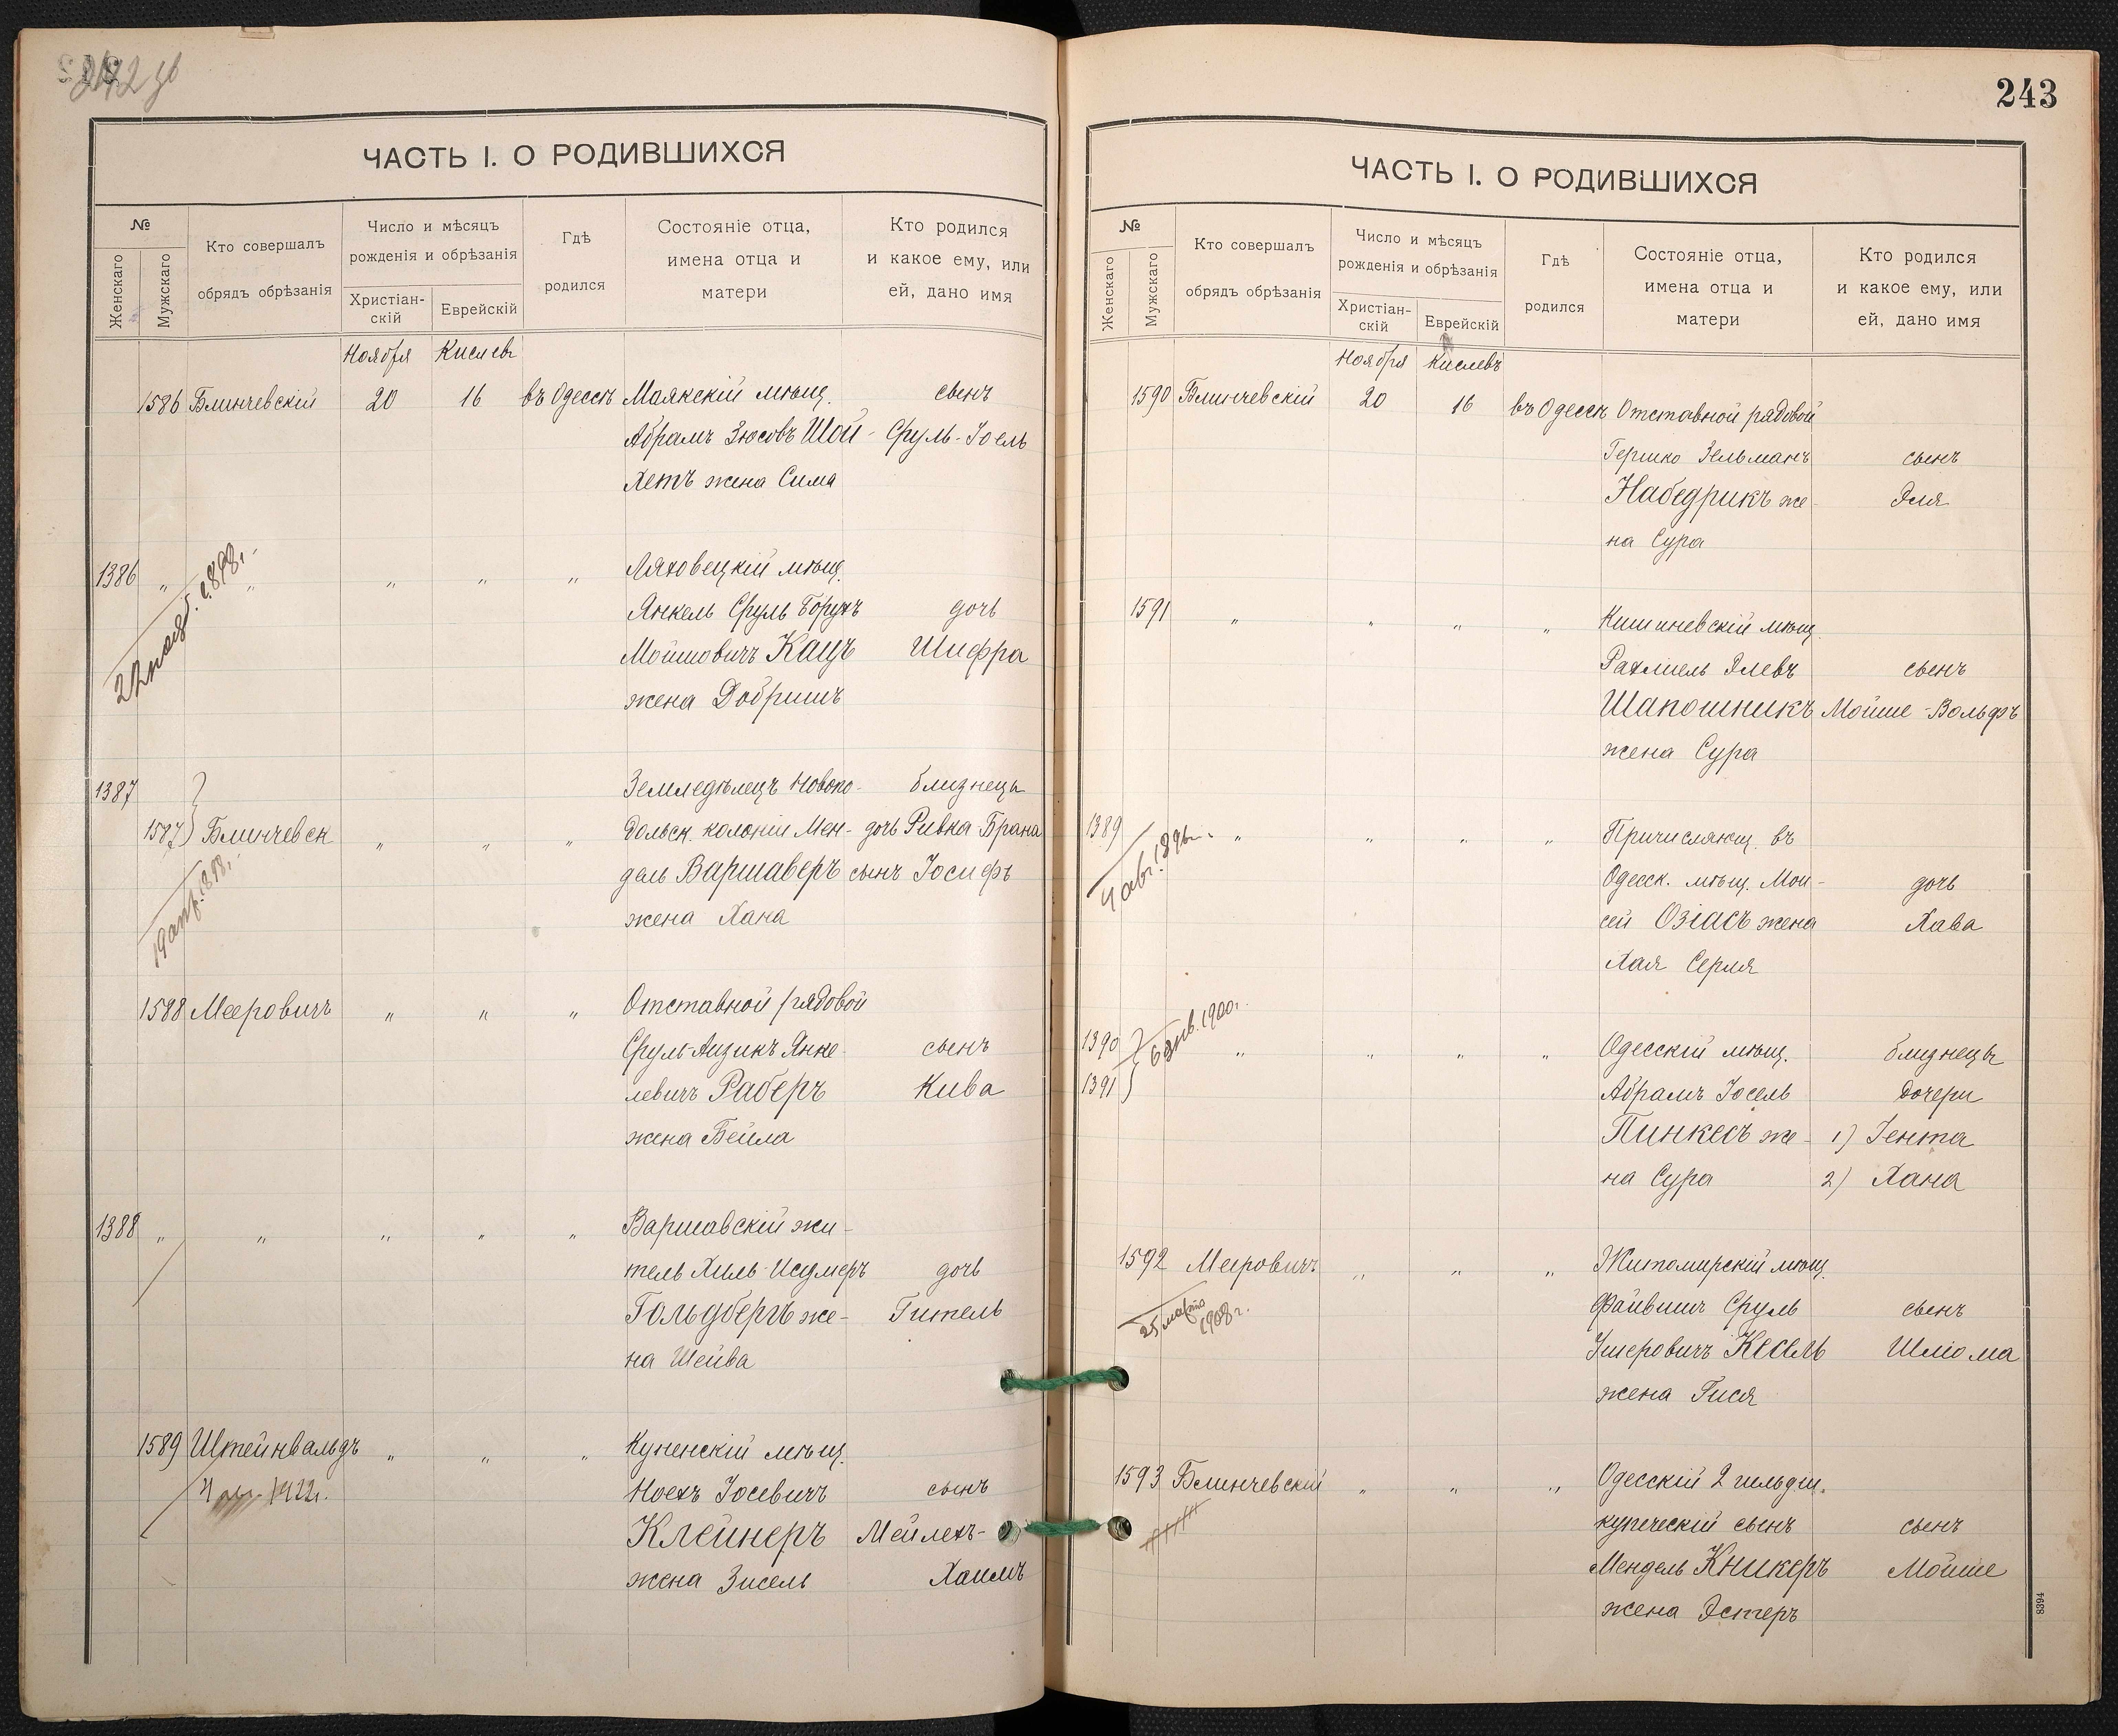 242 об
ЧАСТЬ I. О РОДИВШИХСЯ
№
Женскаго
Мужскаго
Кто совершалъ
обрядъ обрѣзанія
Число и мѣсяцъ
рожденія и обрѣзанія
Христіан-
скій
Еврейскій
Гдѣ
родился
Состояніе отца,
имена отца и
матери
Кто родился
и какое ему, или
ей, дано имя
Ноября Кислевъ
1586 Блинчевскій 20 16 въ Одессѣ Маякскій мѣщ. сынъ
Абрамъ Зюсовъ Шой- Сруль-Іоель
хетъ жена Сима
1386 „ „ „ „ „ Ляховецкій мѣщ.
22 нояб. 1898г.
Янкель Сруль Борухъ дочь
Мошковичъ Кацъ Шифра
жена Добришъ
1387 Земледѣлецъ Новопо- близнецы
1587 Блинчевск „ „ „ дольск. колоніи Мен- дочь Ривка Брана
19 апр. 1898г.
дель Варшаверъ сынъ Іосифъ
жена Хана
1588 Мееровичъ „ „ „ Отставной рядовой
Сруль-Айзикъ Янке- сынъ
левичъ Раберъ Кива
жена Бейла
1388 „ „ „ „ „ Варшавскій жи-
тель Хиль-Исумеръ дочь
Гольдбергъ же- Гитель
на Шейва
1589 Штейнвальдъ „ „ „ Куненскій мѣщ.
1922г.
Ноехъ Іосевичъ сынъ
Клейнеръ Мейлехъ-
жена Зисель Хаимъ
243
ЧАСТЬ I. О РОДИВШИХСЯ
№
Женскаго
Мужскаго
Кто совершалъ
обрядъ обрѣзанія
Число и мѣсяцъ
рожденія и обрѣзанія
Христіан-
скій
Еврейскій
Гдѣ
родился
Состояніе отца,
имена отца и
матери
Кто родился
и какое ему, или
ей, дано имя
Ноября Кислевъ
1590 Блинчевскій 20 16 въ Одессѣ Отставной рядовой
Гершко Зельманъ сынъ
Набедрикъ же- Эля
на Сура
1591 „ „ „ „ Кишиневскій мѣщ.
Рахміель Элевъ сынъ
Шапошникъ Мойше-Вольфъ
жена Сура
1389 „ „ „ „ Причисляющ. въ
4 авг. 1896г.
Одесск. мѣщ. Мои- дочь
сей Озіасъ жена Хава
Хая Серля
1390 „ „ „ „ Одесскій мѣщ. близнецы
6 янв. 1900г.
1391 Абрамъ Іосель дочери
Пинкесъ же- 1) Іента
на Сура 2) Хана
1592 Мееровичъ „ „ „ Житомирскій мѣщ.
25 марта
1908г.
Файвишъ Сруль сынъ
Ушеровичъ Кесель Шліома
жена Гися
1593 Блинчевскій „ „ „ Одесскій 2 гильдіи.
купеческій сынъ сынъ
Мендель Кникеръ Мойше
жена Эстеръ
8394